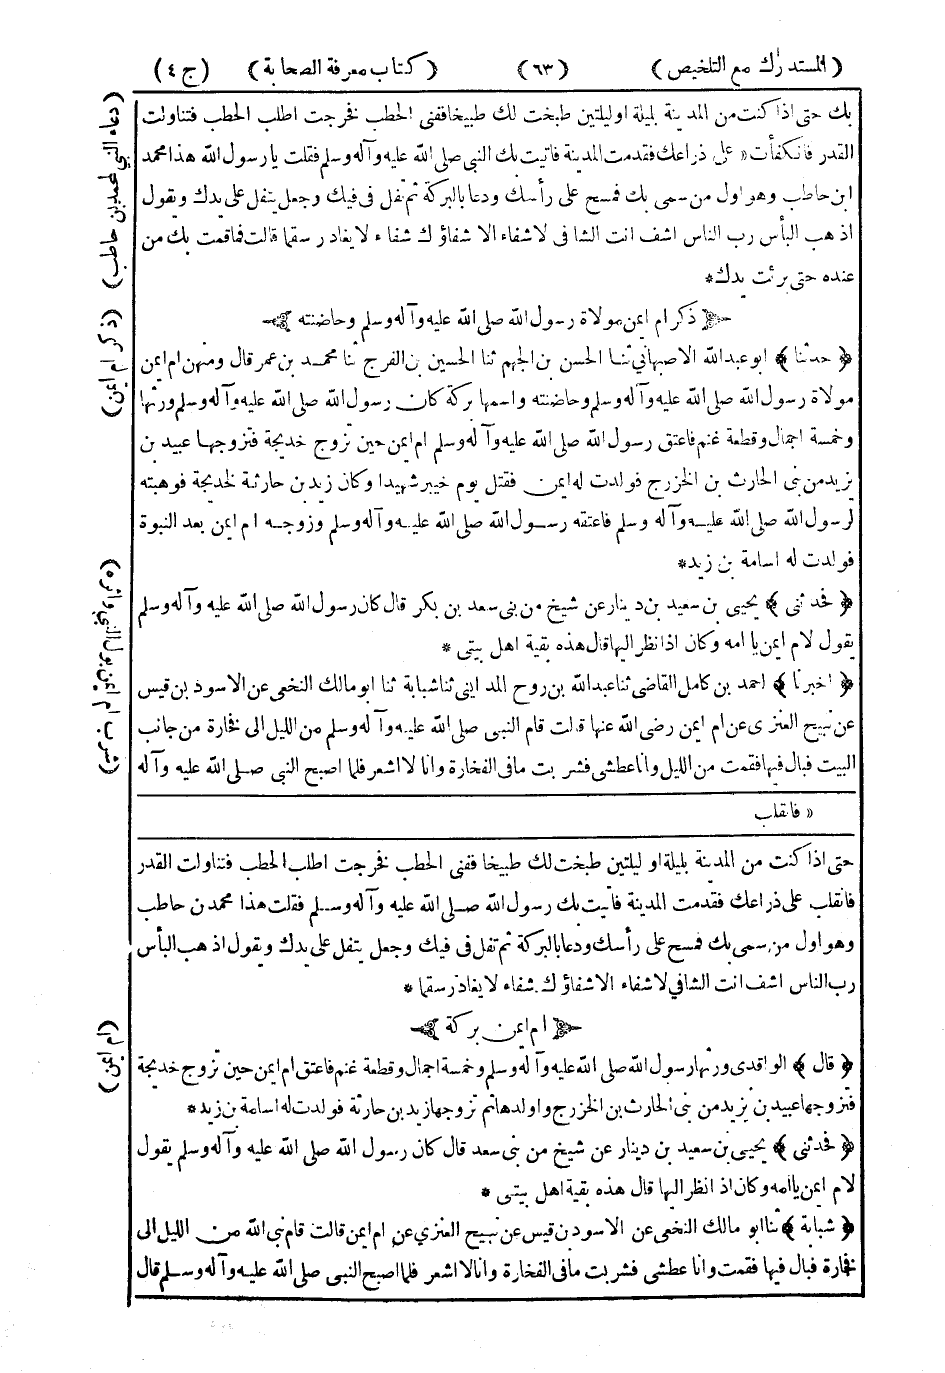 (المستدرك مع التلخيص) (٦٣) (كتاب معرفة الصحابة) (ج ٤)
بك حتى اذا كنت من المدينة بليلة او ليلتين طبخت لك طبيخا ففنى الحطب فخرجت اطلب الحطب فتناولت
القدر فانكفأت « على ذراعك فقدمت المدينة فاتيت بك النبي صلى الله عليه وآله وسلم فقلت يا رسول الله هذا محمد
ابن حاطب وهو اول من سمى بك فمسح على رأسك ودعا بالبركة ثم تفل فى فيك وجعل يتفل على يدك ويقول
اذهب البأس رب الناس اشف انت الشافى لا شفاء الا شفاؤك شفاء لا يغادر سقما قالت فما قمت بك من
عنده حتى برئت يدك*
ذكر ام ايمن مولاة رسول الله صلى الله عليه وآله وسلم وحاضنته
﴿ حدثنا ﴾ ابو عبدالله الاصبهاني ثنا الحسن بن الجهم ثنا الحسين بن الفرج ثنا محمد بن عمر قال ومنهن ام ايمن
مولاة رسول الله صلى الله عليه وآله وسلم وحاضنته واسمها بركة كان رسول الله صلى الله عليه وآله وسلم ورثها
وخمسة اجمال وقطعة غنم فاعتق رسول الله صلى الله عليه وآله وسلم ام ايمن حين تزوج خديجة فتزوجها عبيد بن
يزيد من بنى الحارث بن الخزرج فولدت له ايمن فقتل يوم خيبر شهيدا وكان زيد بن حارثة لخديجة فوهبته
لرسول الله صلى الله عليه وآله وسلم فاعتقه رسول الله صلى الله عليه وآله وسلم وزوجه ام ايمن بعد النبوة
فولدت له اسامة بن زيد*
﴿ فحدثنى ﴾ يحيى بن سعيد بن دينار عن شيخ من بنى سعد بن بكر قال كان رسول الله صلى الله عليه وآله وسلم
يقول لام ايمن يا امه وكان اذا نظر اليها قال هذه بقية اهل بيتى *
﴿ اخبرنا ﴾ احمد بن كامل القاضى ثنا عبدالله بن روح المداينى ثنا شبابة ثنا ابو مالك النخعى عن الاسود بن قيس
عن نبيح العنزى عن ام ايمن رضى الله عنها قالت قام النبى صلى الله عليه وآله وسلم من الليل الى فخارة من جانب
البيت فبال فيها فقمت من الليل وانا عطشى فشربت ما فى الفخارة وانا لا اشعر فلما اصبح النبى صلى الله عليه وآله
« فانقلب
حتى اذا كنت من المدينة بليلة او ليلتين طبخت لك طبيخا ففنى الحطب فخرجت اطلب الحطب فتناولت القدر
فانقلب على ذراعك فقدمت المدينة فاتيت بك رسول الله صلى الله عليه وآله وسلم فقلت هذا محمد بن حاطب
وهو اول من سمى بك فمسح على رأسك ودعا بالبركة ثم تفل فى فيك وجعل يتفل على يدك ويقول اذهب البأس
رب الناس اشف انت الشافي لا شفاء الا شفاؤك شفاء لا يغادر سقما *
ام ايمن بركة
﴿ قال ﴾ الواقدى ورثها رسول الله صلى الله عليه وآله وسلم وخمسة اجمال وقطعة غنم فاعتق ام ايمن حين تزوج خديجة
فتزوجها عبيد بن يزيد من بنى الحارث بن الخزرج واولدها ثم تزوجها زيد بن حارثة فولدت له اسامة بن زيد*
﴿ فحدثنى ﴾ يحيى بن سعيد بن دينار عن شيخ من بنى سعد قال كان رسول الله صلى الله عليه وآله وسلم يقول
لام ايمن يا امه وكان اذا نظر اليها قال هذه بقية اهل بيتى *
﴿ شبابة ﴾ ثنا ابو مالك النخعى عن الاسود بن قيس عن نبيح العنزي عن ام ايمن قالت قام نبى الله من الليل الى
فخارة فبال فيها فقمت وانا عطشى فشربت ما فى الفخارة وانا لا اشعر فلما اصبح النبى صلى الله عليه وآله وسلم قال
(دعاء النبي لمحمد بن حاطب)
(ذكر ام ايمن)
(شرب ام ايمن بول النبي واثره)
(ام ايمن)